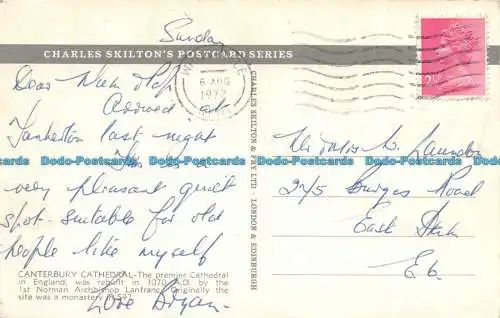 Sunday
CHARLES SKILTON'S POSTCARD SERIES
6 AUG
1972
2½P
Dear Mum & Pop
Arrived at
Tankerton last night
This is a
very pleasant quiet
spot. Suitable for old
people like myself
Love Bryan.
CANTERBURY CATHEDRAL—The premier Cathedral
in England, was rebuilt in 1070 A.D. by the
1st Norman Archbishop Lanfranc. Originally the
site was a monastery in 597.
CHARLES SKILTON & FRY LTD · LONDON & EDINBURGH
Mr & Mrs W.
245 Burges Road
East Ham
E6.
Dodo-Postcards Dodo-Postcards Dodo-Postcards Dodo-Postcards
Dodo-Postcards Dodo-Postcards Dodo-Postcards Dodo-Postcards